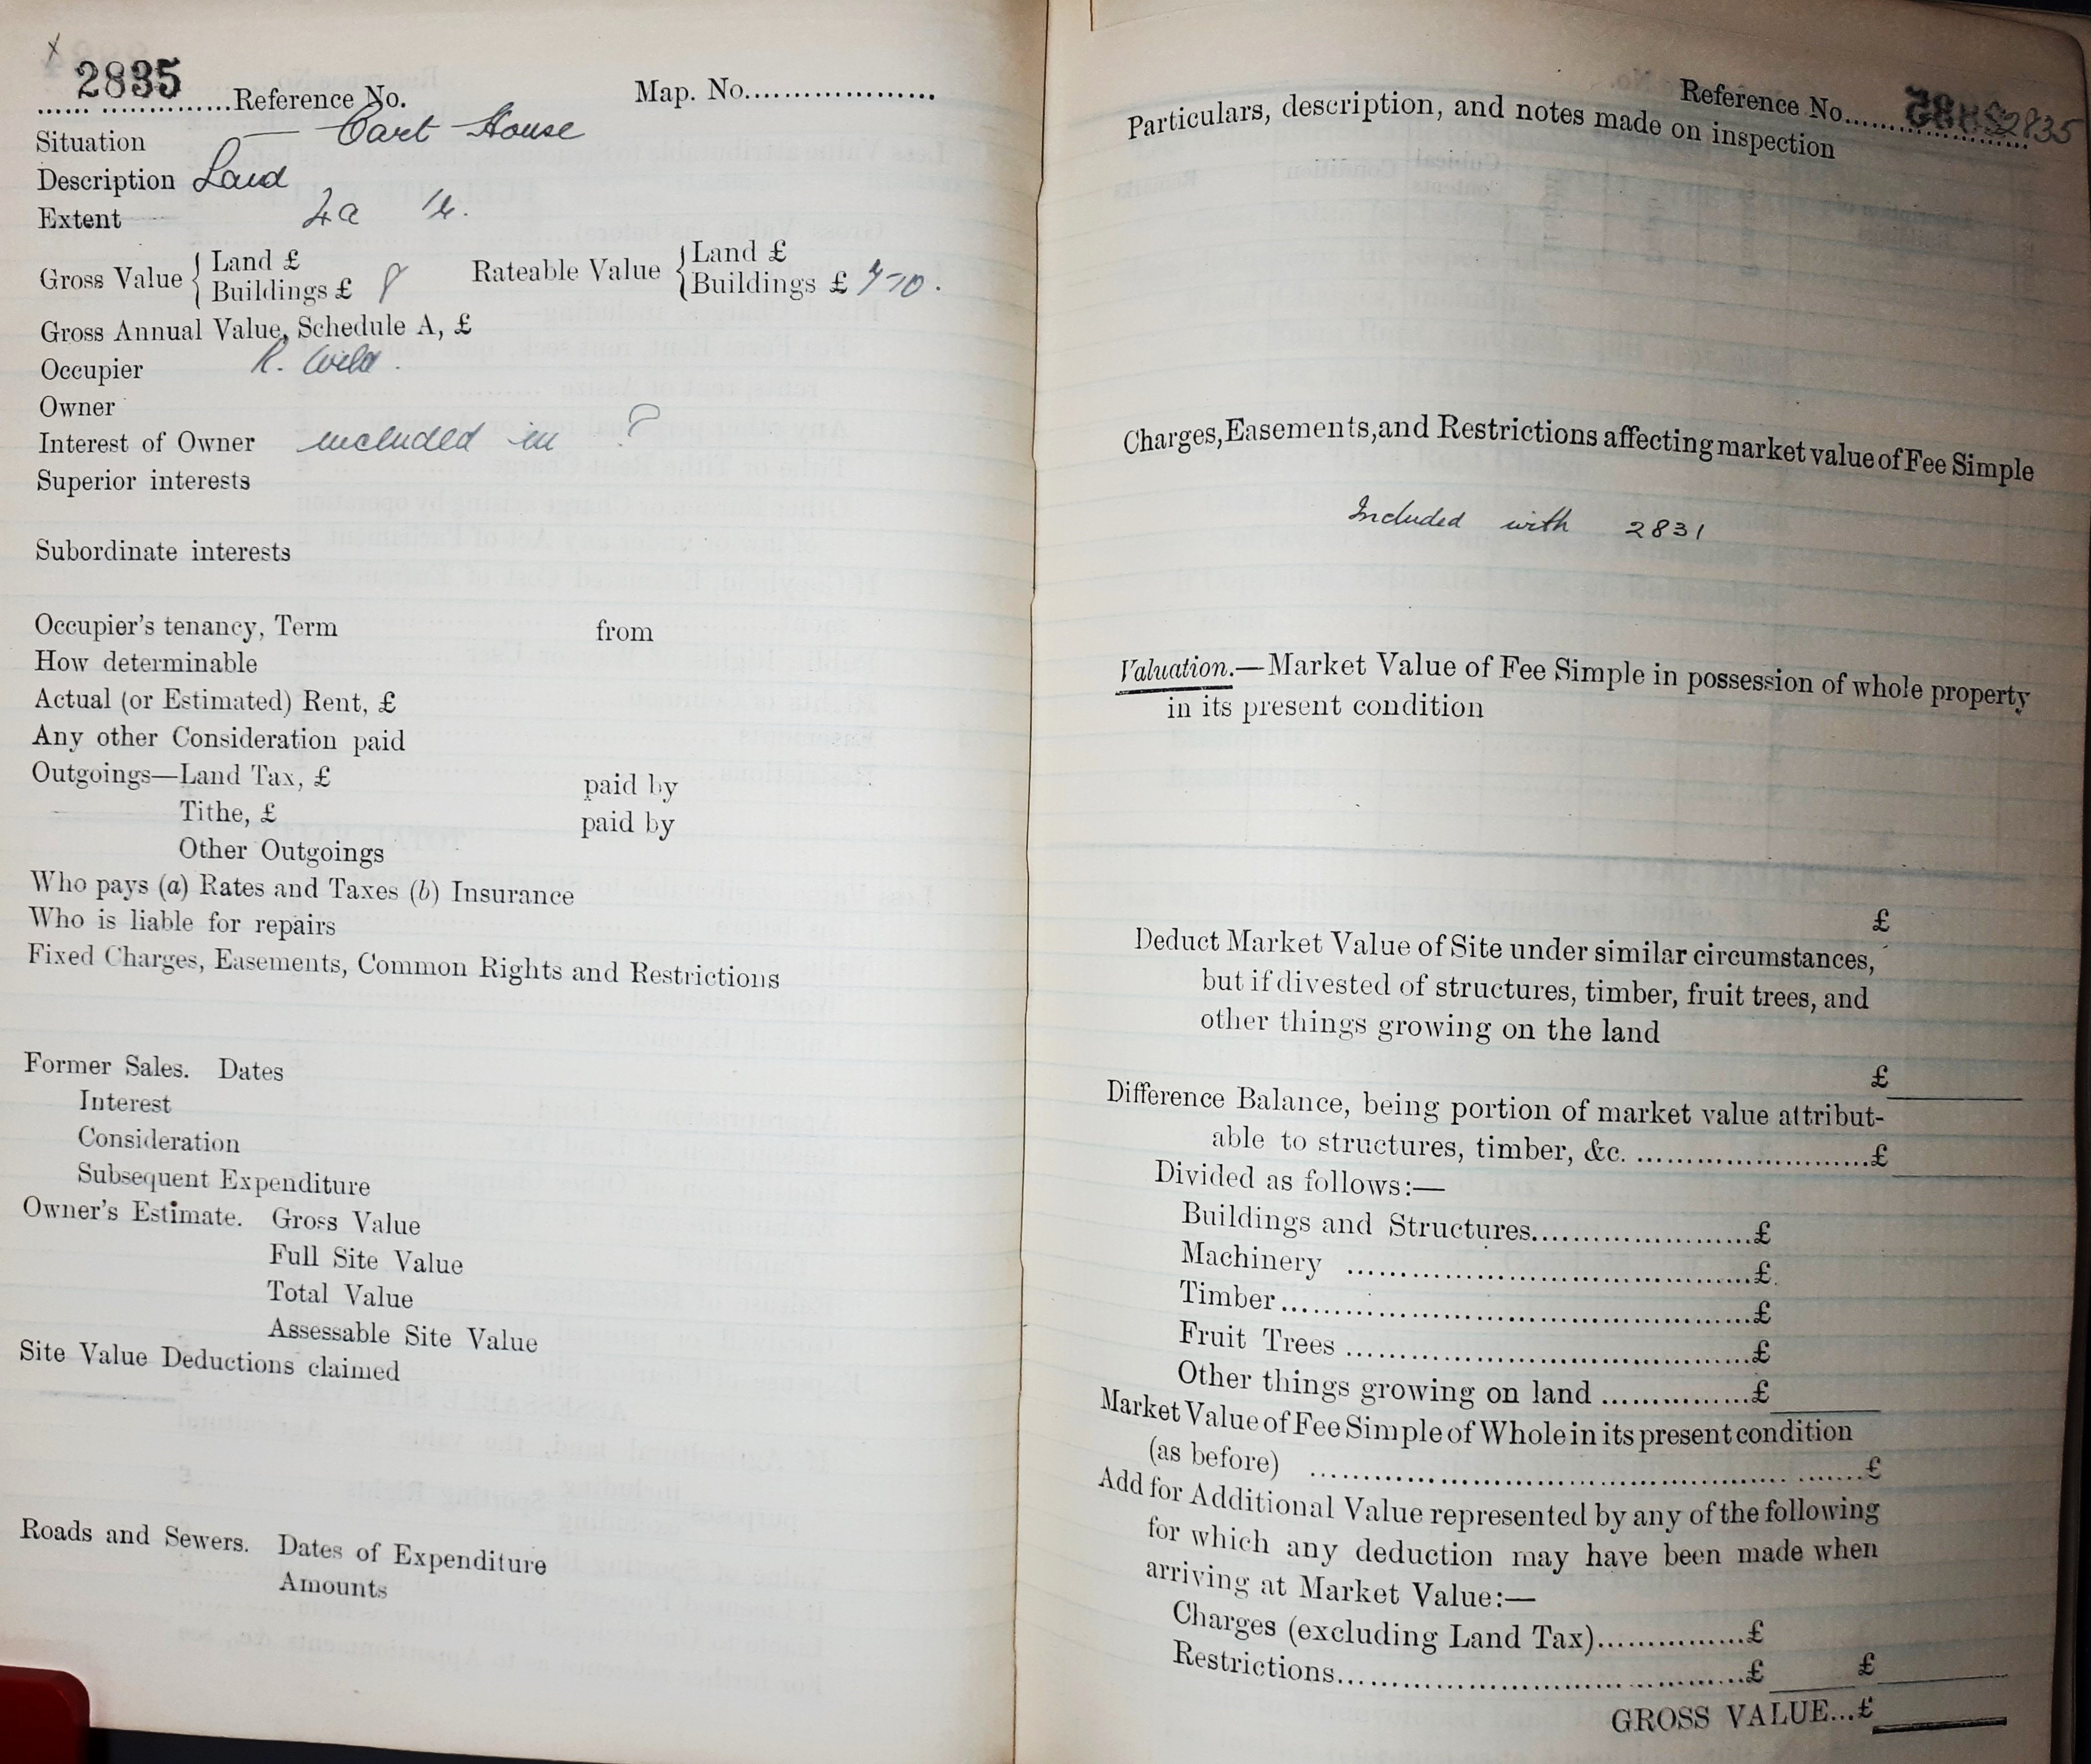 x
2835 Reference No. Map. No....................
Situation — Cart House
Description Land
Extent 4a 1r.
Gross Value { Land £ Rateable Value { Land £
Buildings £ 8 Buildings £ 7-10.
Gross Annual Value, Schedule A, £
Occupier R. Wild.
Owner
Interest of Owner included in ?
Superior interests
Subordinate interests
Occupier's tenancy, Term from
How determinable
Actual (or Estimated) Rent, £
Any other Consideration paid
Outgoings—Land Tax, £ paid by
Tithe, £ paid by
Other Outgoings
Who pays (a) Rates and Taxes (b) Insurance
Who is liable for repairs
Fixed Charges, Easements, Common Rights and Restrictions
Former Sales. Dates
Interest
Consideration
Subsequent Expenditure
Owner's Estimate. Gross Value
Full Site Value
Total Value
Assessable Site Value
Site Value Deductions claimed
Roads and Sewers. Dates of Expenditure
Amounts
Reference No. 2835
Particulars, description, and notes made on inspection
Charges, Easements, and Restrictions affecting market value of Fee Simple
Included with 2831
Valuation.—Market Value of Fee Simple in possession of whole property
in its present condition
£
Deduct Market Value of Site under similar circumstances,
but if divested of structures, timber, fruit trees, and
other things growing on the land
£
Difference Balance, being portion of market value attribut-
able to structures, timber, &c. ..........................£
Divided as follows:—
Buildings and Structures........................£
Machinery ...........................................£
Timber..................................................£
Fruit Trees ...........................................£
Other things growing on land ................£
Market Value of Fee Simple of Whole in its present condition
(as before) ............................................................£
Add for Additional Value represented by any of the following
for which any deduction may have been made when
arriving at Market Value:—
Charges (excluding Land Tax)................£
Restrictions.............................................£ £
GROSS VALUE...£